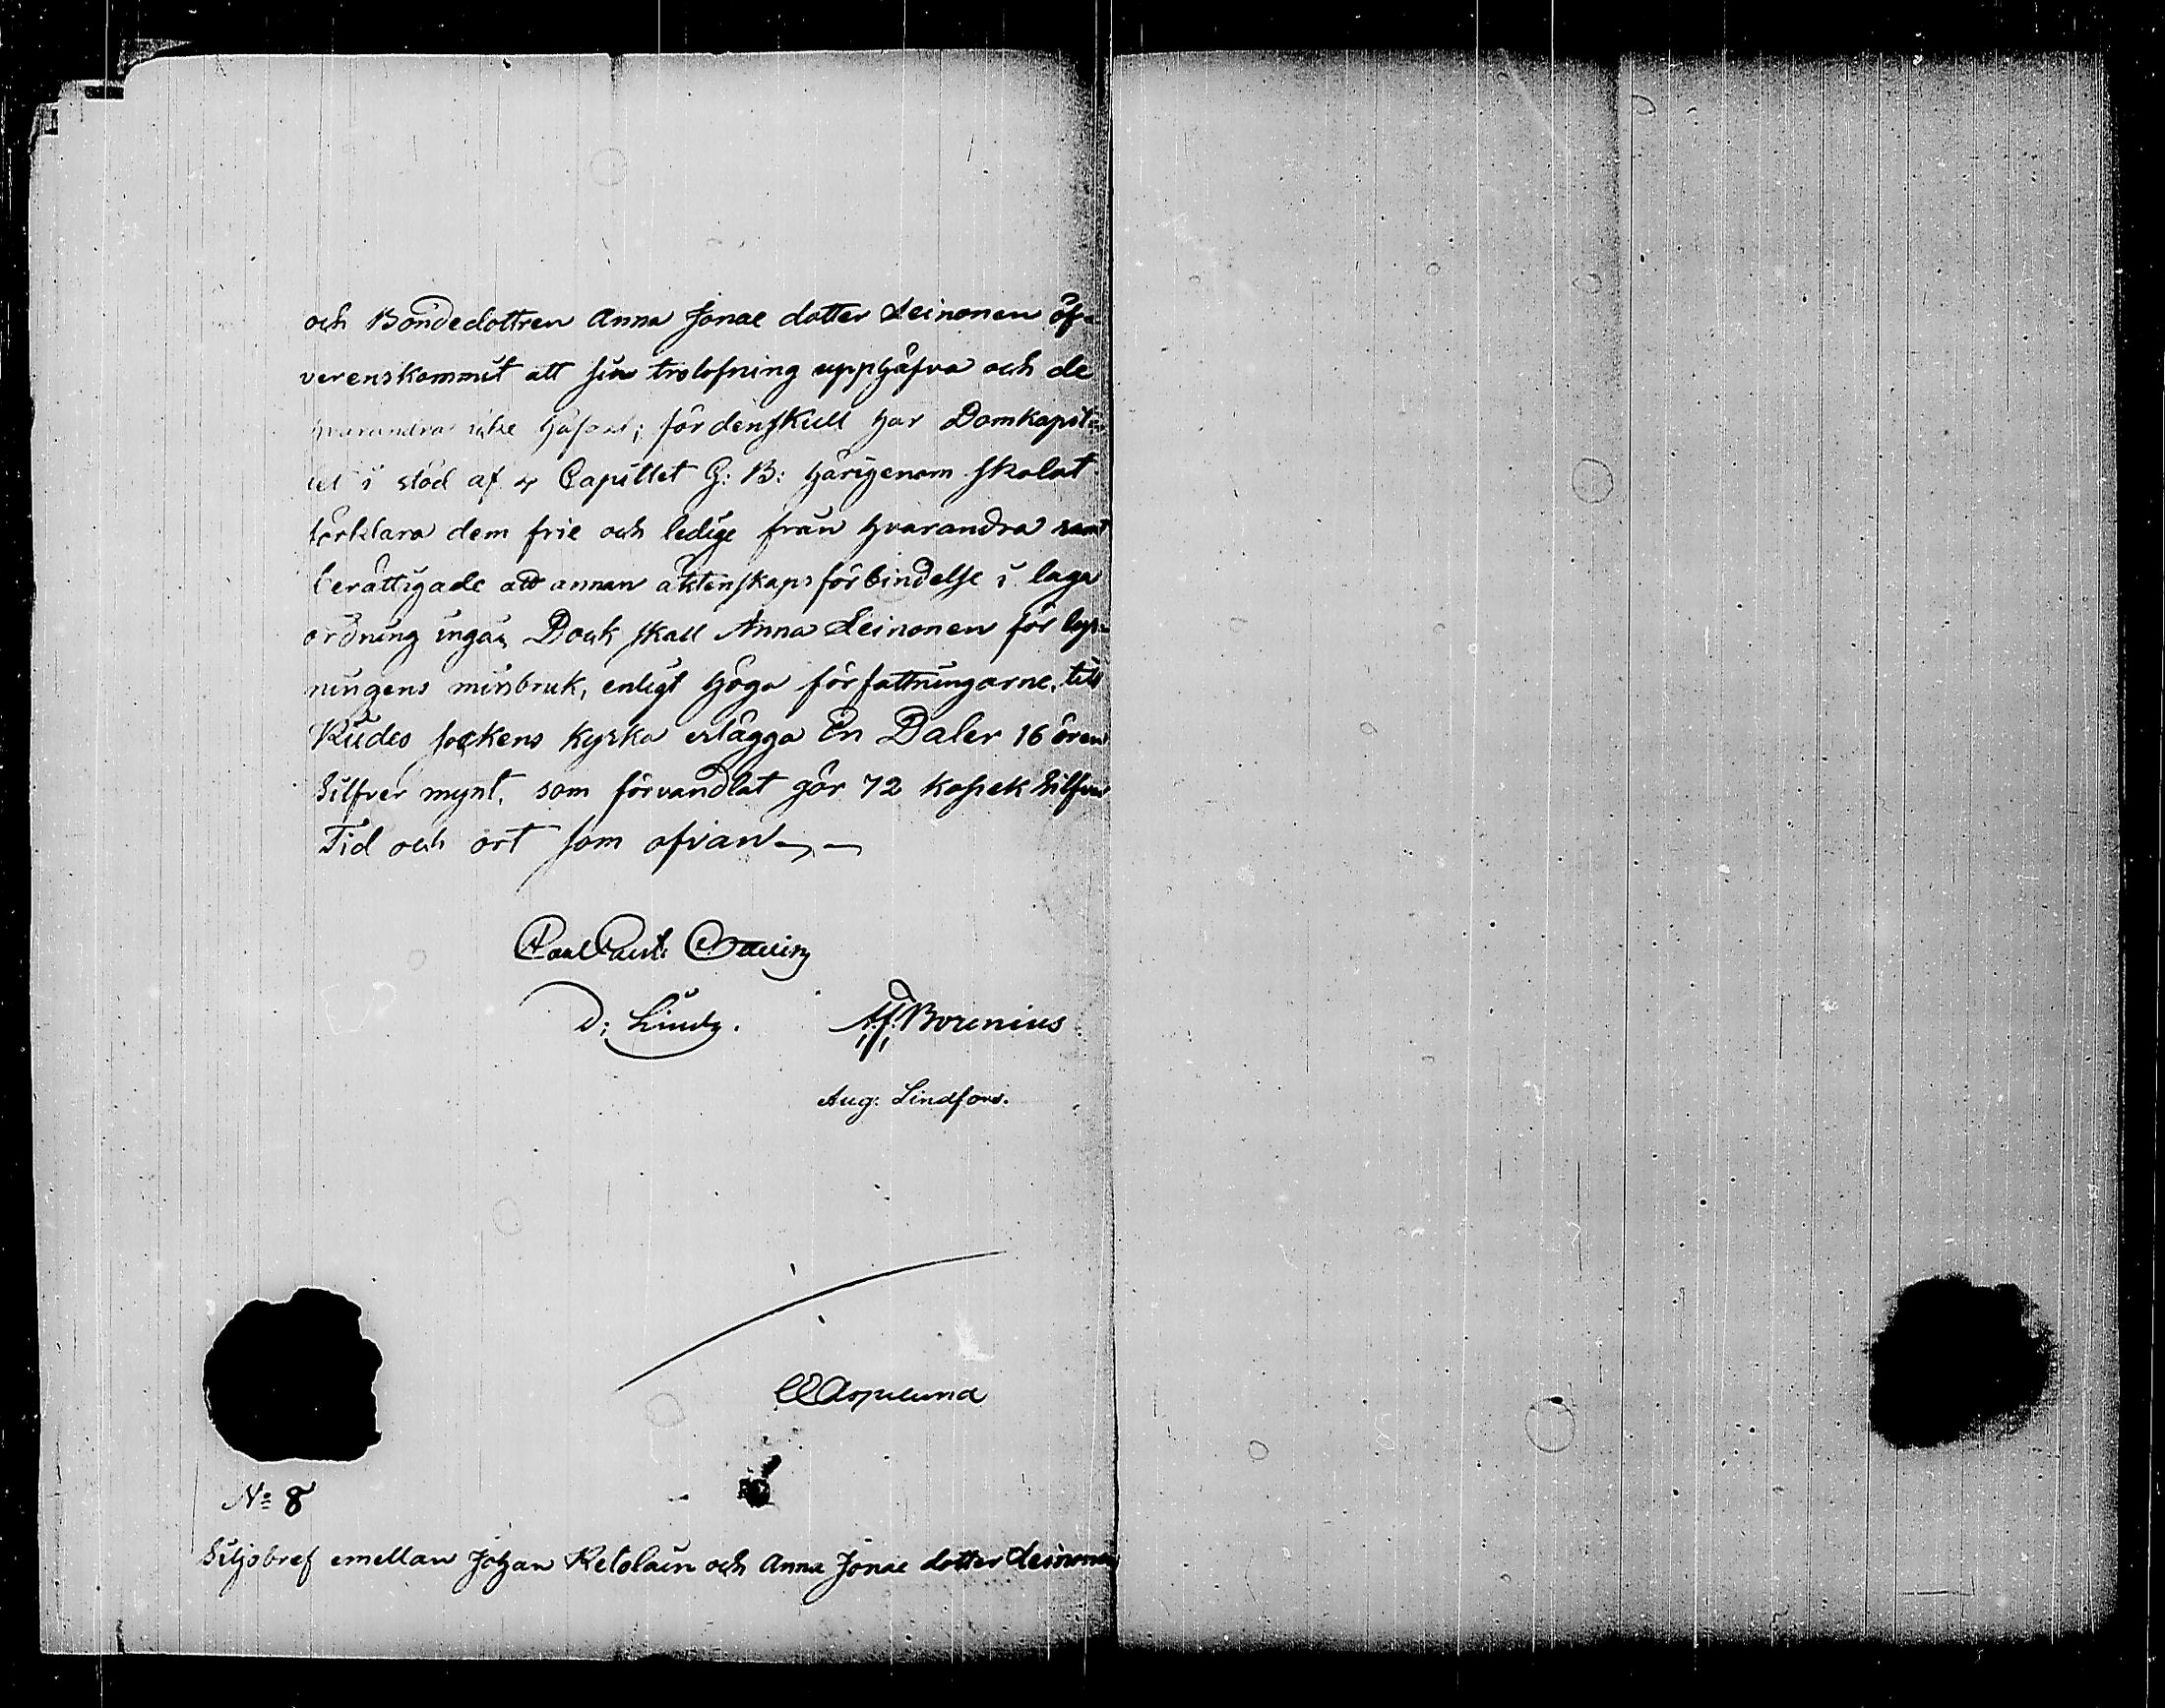 och Bondedottren Anna Jonae dotter Leinonen öf-
verenskommit att sin trolofning uppgäfva och de
hvarandra icke häfdat; fördenskull har Domkapit-
let i stöd af 4 Capitlet G: B: härigenom skolat
förklara dem frie och ledige från hvarandra samt
berättigade att annan äktenskapsförbindelse i laga
ordning ingå, Dock skall Anna Leinonen för lys-
ningens missbruk, enligt höga författningarne, till
sockens kyrka erlägga En Daler 16 ören
Silfver mynt, som förvandlat gör 72 kopek Silfver
Tid och ort som ofvan
D: 
Borenius
Aug: Lindfors.
Asplund
No 8
Siljobref emellan Johan Ketolain och Anna Jonae dotter Leinonen